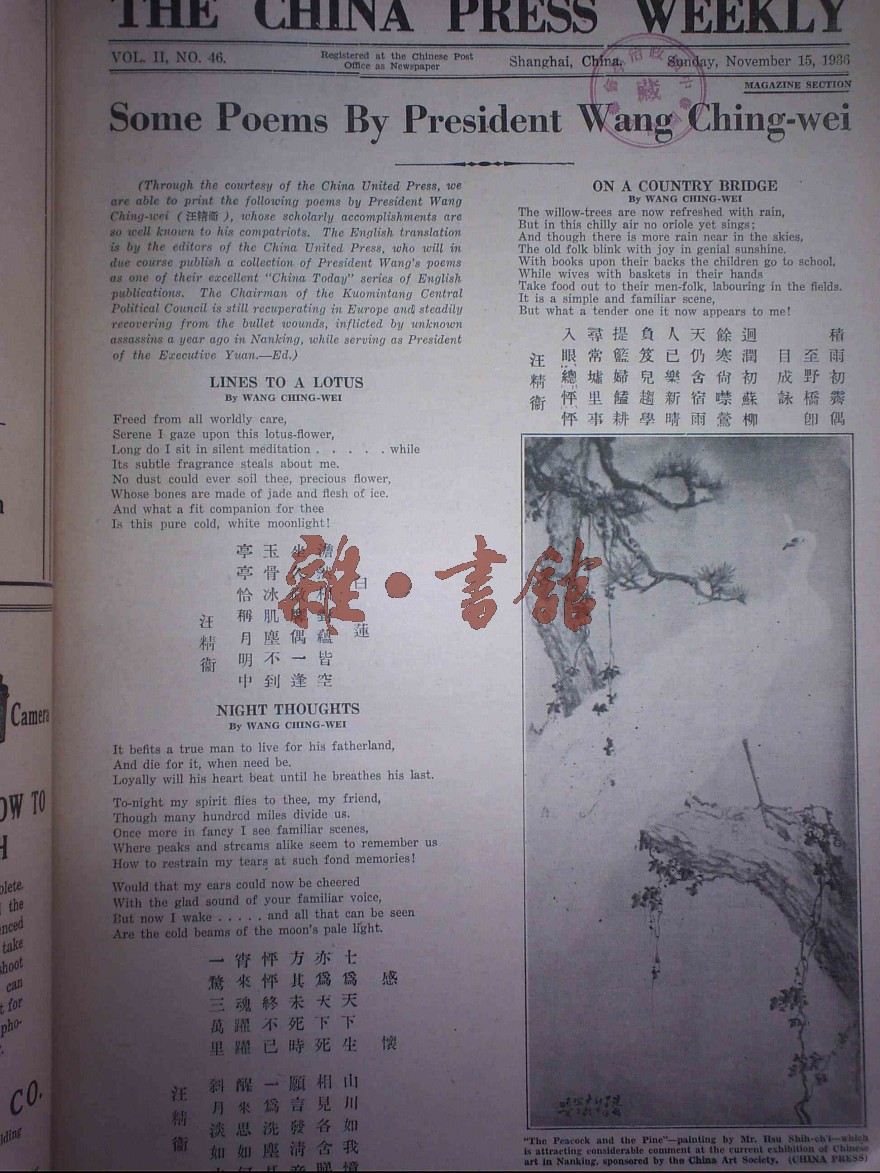 THE CHINA PRESS WEEKLY
VOL. II, NO. 46.
Registered at the Chinese Post
Office as Newspaper
Shanghai, China.
Sunday, November 15, 1936
MAGAZINE SECTION
Some Poems By President Wang Ching-wei
(Through the courtesy of the China United Press, we
are able to print the following poems by President Wang
Ching-wei (汪精衛), whose scholarly accomplishments are
so well known to his compatriots. The English translation
is by the editors of the China United Press, who will in
due course publish a collection of President Wang's poems
as one of their excellent "China Today" series of English
publications. The Chairman of the Kuomintang Central
Political Council is still recuperating in Europe and steadily
recovering from the bullet wounds, inflicted by unknown
assassins a year ago in Nanking, while serving as President
of the Executive Yuan.—Ed.)
LINES TO A LOTUS
By WANG CHING-WEI
Freed from all worldly care,
Serene I gaze upon this lotus-flower,
Long do I sit in silent meditation . . . . . while
Its subtle fragrance steals about me.
No dust could ever soil thee, precious flower,
Whose bones are made of jade and flesh of ice.
And what a fit companion for thee
Is this pure cold, white moonlight!
白蓮
澹然相對蘊皆空
坐久微馨偶一逢
玉骨冰肌塵不到
亭亭恰稱月明中
汪精衛
NIGHT THOUGHTS
By WANG CHING-WEI
It befits a true man to live for his fatherland,
And die for it, when need be.
Loyally will his heart beat until he breathes his last.
To-night my spirit flies to thee, my friend,
Though many hundred miles divide us.
Once more in fancy I see familiar scenes,
Where peaks and streams alike seem to remember us
How to restrain my tears at such fond memories!
Would that my ears could now be cheered
With the glad sound of your familiar voice,
But now I wake . . . . . and all that can be seen
Are the cold beams of the moon's pale light.
感懷
士為天下生
亦為天下死
方其未死時
怦怦終不已
宵來魂躍躍
一騖三萬里
山川如我憶
相見各含睇
願言發清音
一為洗塵
醒來思如
斜月淡如
汪精衛
ON A COUNTRY BRIDGE
By WANG CHING-WEI
The willow-trees are now refreshed with rain,
But in this chilly air no oriole yet sings;
And though there is more rain near in the skies,
The old folk blink with joy in genial sunshine.
With books upon their backs the children go to school,
While wives with baskets in their hands
Take food out to their men-folk, labouring in the fields.
It is a simple and familiar scene,
But what a tender one it now appears to me!
積雨初霽偶
至野橋卽
目成詠
迴潤初蘇柳
餘寒尚噤鶯
天仍含宿雨
人已樂新晴
負笈兒趨學
提籃婦饁耕
尋常墟里事
入眼總怦怦
汪精衛
"The Peacock and the Pine"—painting by Mr. Hsu Shih-ch'i—which
is attracting considerable comment at the current exhibition of Chinese
art in Nanking, sponsored by the China Art Society. (CHINA PRESS)
Camera
OW TO
CO.
雜·書館